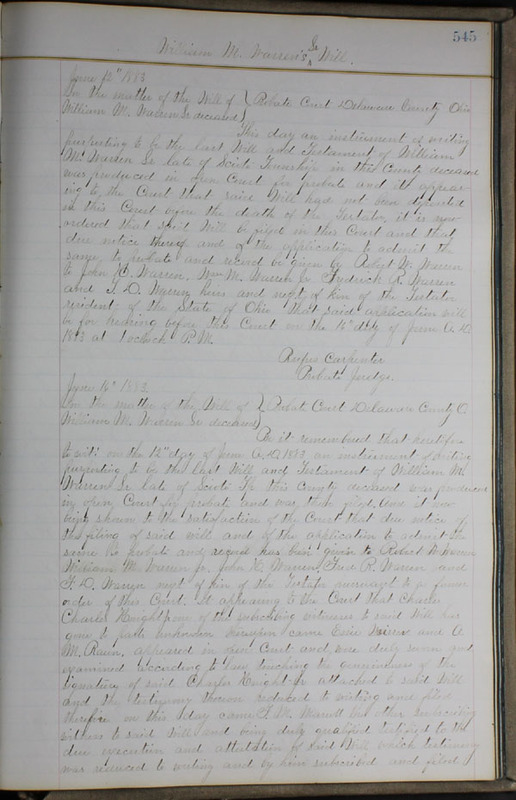 545
William M. Warren's Sr Will.
June 12th 1883
In the matter of the Will of } Probate Court Delaware County Ohio
William M. Warren Sr deceased }
This day an instrument of writing
purporting to be the last Will and Testament of William
M. Warren Sr late of Scioto Township in this County deceased
was produced in open Court for probate and it appear-
ing to the Court that said Will had not been deposited
in this Court before the death of the Testator, it is now
ordered that said Will be filed in this Court and that
due notice thereof and of the application to admit the
same to probate and record be given by Robert W. Warren
to John H. Warren, Wm M. Warren Jr Fredrick R. Warren
and T. D. Warren heirs and next of kin of the Testator
resident of the State of Ohio that said application will
be for hearing before this Court on the 16th day of June A.D.
1883 at 1 oclock P.M.
Rufus Carpenter
Probate Judge.
June 16th 1883.
In the matter of the Will of } Probate Court Delaware County O.
William M. Warren Sr deceased }
Be it remembered that heretofore
to wit: on the 12th day of June A.D. 1883 an instrument of writing
purporting to be the last Will and Testament of William M.
Warren Sr late of Scioto Tp this County deceased was produced
in open Court for probate and was then filed, and it now
being shown to the satisfaction of the Court that due notice of
the filing of said will and of the application to admit the
same to probate and record has been given to Robert W. Warren
William M. Warren Jr. John H. Warren, Fred R. Warren and
T. D. Warren next of kin of the Testator pursuant to a former
order of this Court. It appearing to the Court that Charles
Charles Knight one of the subscribing witnesses to said Will has
gone to parts unknown thereupon came and A.
M. appeared in open Court and were duly sworn and
examined according to law touching the genuineness of the
signature of said Charles Knight attached to said Will
and the testimony thereon reduced to writing and filed
therefore in this day came T. M. the other subscribing
witness to said Will and being duly qualified testified to the
due execution and attestation of said Will which testimony
was reduced to writing and by him subscribed and filed